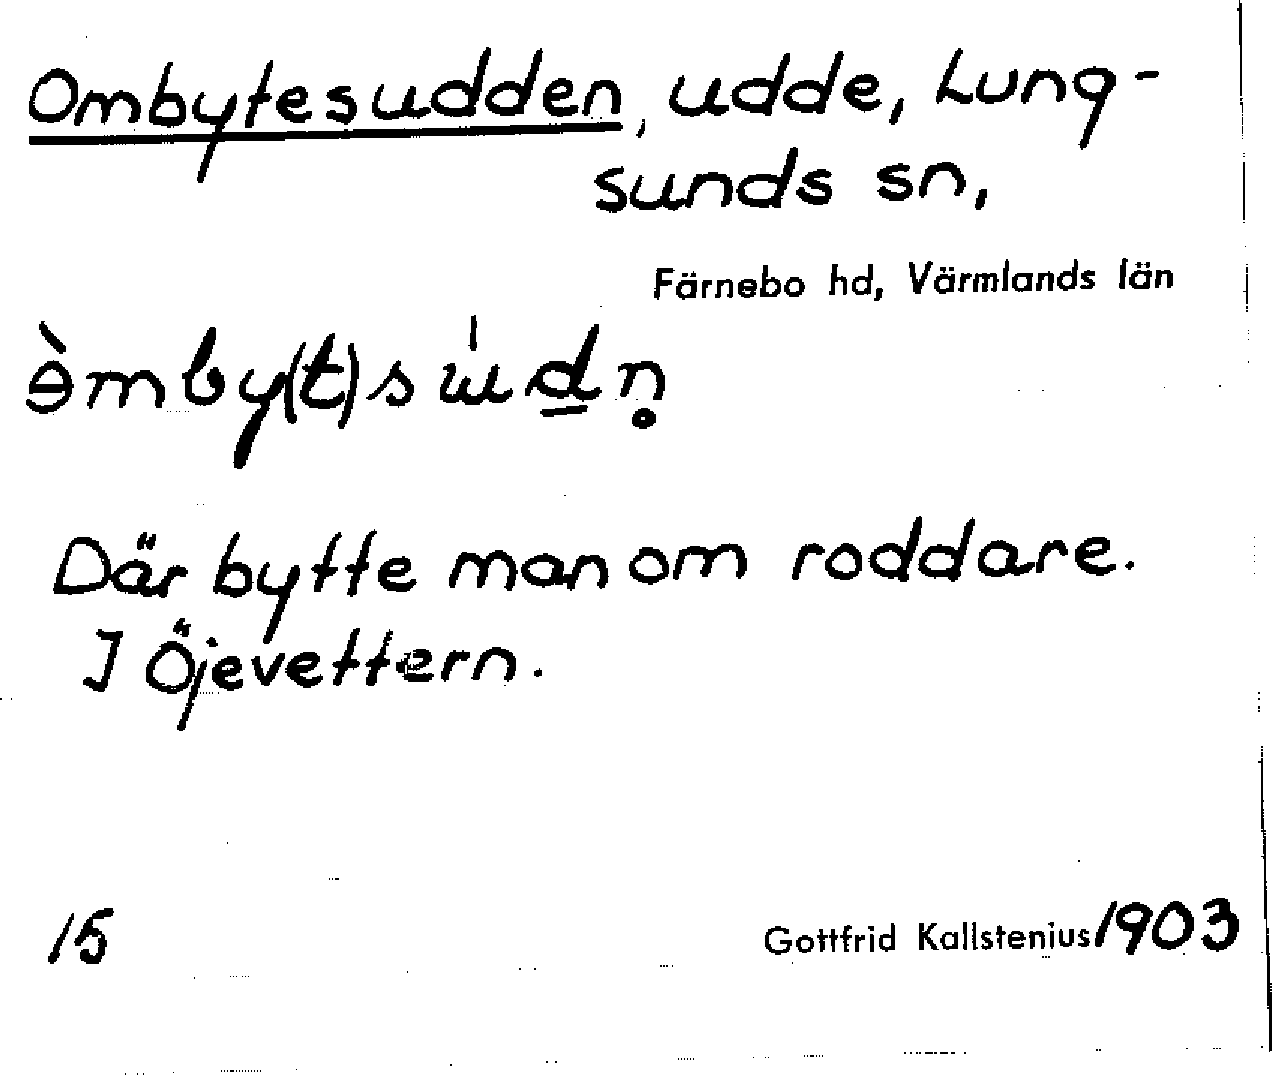 Ombytesudden, udde, Lung-
sunds sn,
Färnebo hd, Värmlands län
ɵ̀mby(t)sɯ̍d̲n̥
Där bytte man om roddare.
I Öjevettern.
15
Gottfrid Kallstenius 1903